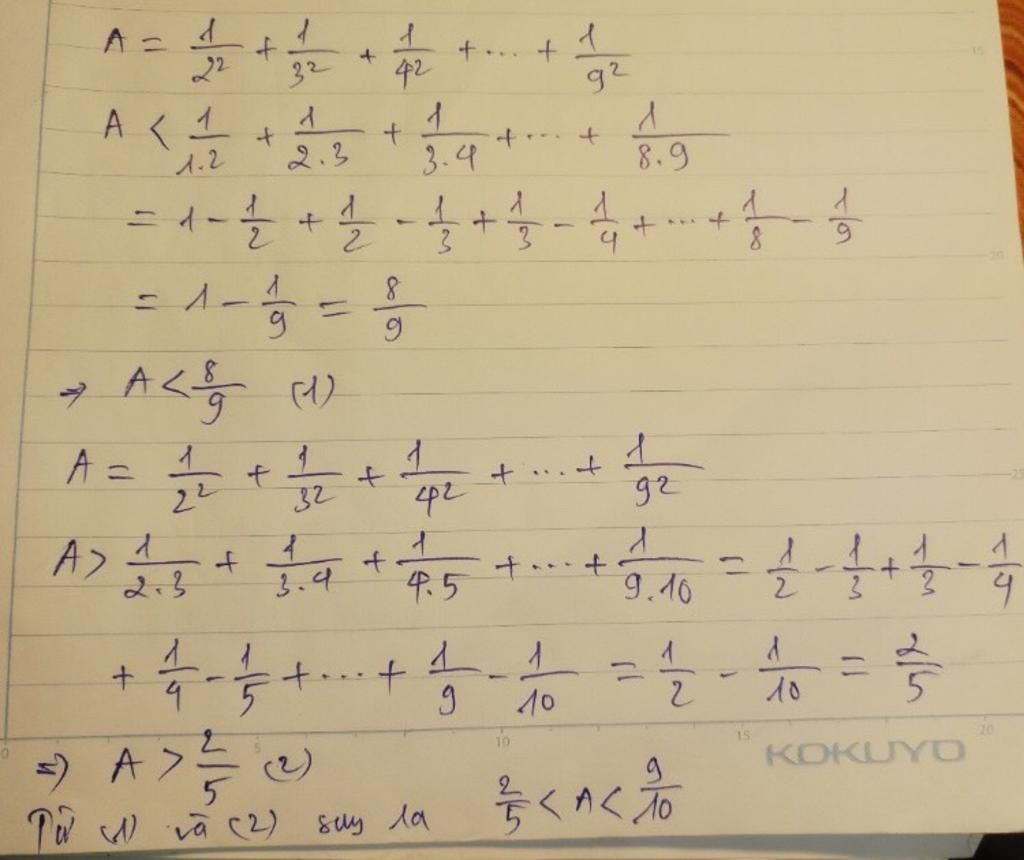 A = 1/2² + 1/3² + 1/4² + ... + 1/9²
A < 1/1.2 + 1/2.3 + 1/3.4 + ... + 1/8.9
= 1 - 1/2 + 1/2 - 1/3 + 1/3 - 1/4 + ... + 1/8 - 1/9
= 1 - 1/9 = 8/9
⇒ A < 8/9 (1)
A = 1/2² + 1/3² + 1/4² + ... + 1/9²
A > 1/2.3 + 1/3.4 + 1/4.5 + ... + 1/9.10 = 1/2 - 1/3 + 1/3 - 1/4
+ 1/4 - 1/5 + ... + 1/9 - 1/10 = 1/2 - 1/10 = 2/5
0 5 10 15 20
KOKUYO
⇒ A > 2/5 (2)
Từ (1) và (2) suy ra 2/5 < A < 9/10
15
20
25